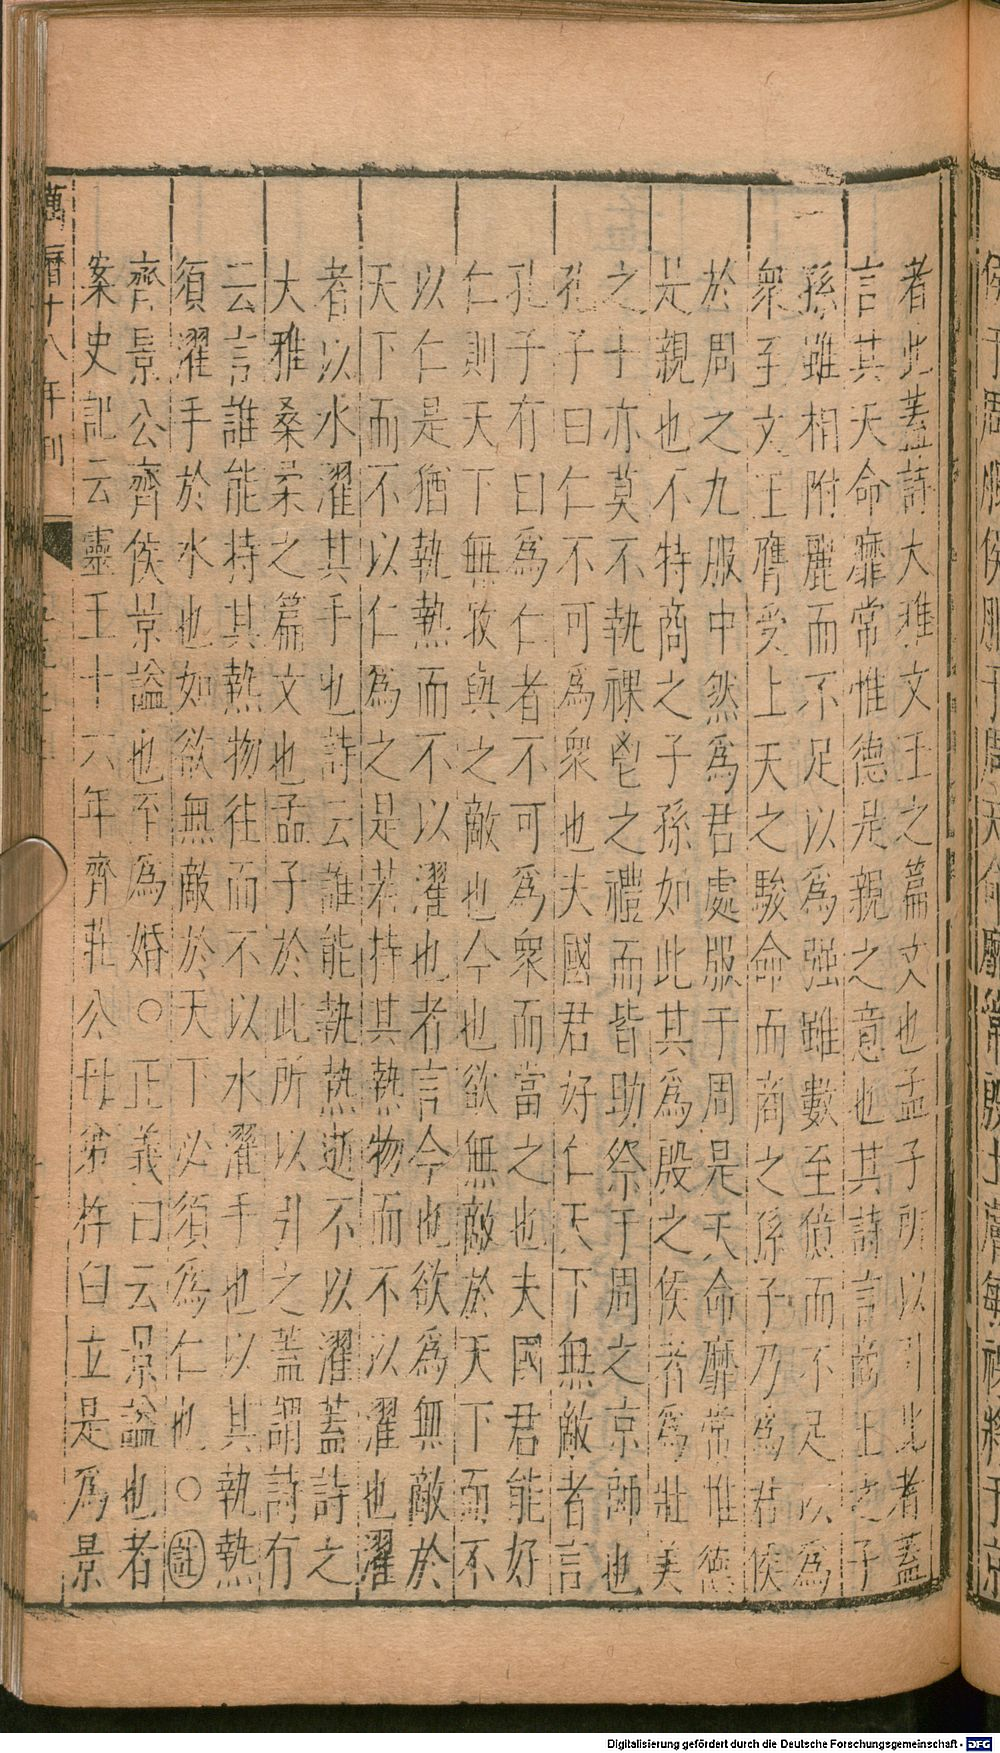 者此蓋詩大雅文王之篇文也孟子所以引此者蓋
言其天命靡常惟德是親之意也其詩言商王之子
孫雖相附麗而不足以為强雖數至億而不足以為
衆至文王膺受上天之駿命而商之孫子乃為君侯
於周之九服中然為君處服于周是天命靡常惟德
是親也不特商之子孫如此其為殷之侯者為壯美
之士亦莫不執祼鬯之禮而皆助祭于周之京師也
孔子曰仁不可為衆也夫國君好仁天下無敵者言
孔子有曰為仁者不可為衆而當之也夫國君能好
仁則天下無敢與之敵也今也欲無敵於天下而不
以仁是猶執熱而不以濯也者言今也欲為無敵於
天下而不以仁為之是若持其熱物而不以濯也濯
者以水濯其手也詩云誰能執熱逝不以濯蓋詩之
大雅桑柔之篇文也孟子於此所以引之蓋謂詩有
云言誰能持其熱物往而不以水濯手也以其執熱
須濯手於水也如欲無敵於天下必須為仁也○註
齊景公齊侯景謚也至為婚○正義曰云景謚也者
案史記云靈王十六年齊莊公母弟杵臼立是為景
萬曆十八年刊
侯于周服侯服于周天命靡常殷士膚敏祼將于京
Digitalisierung gefördert durch die Deutsche Forschungsgemeinschaft - DFG